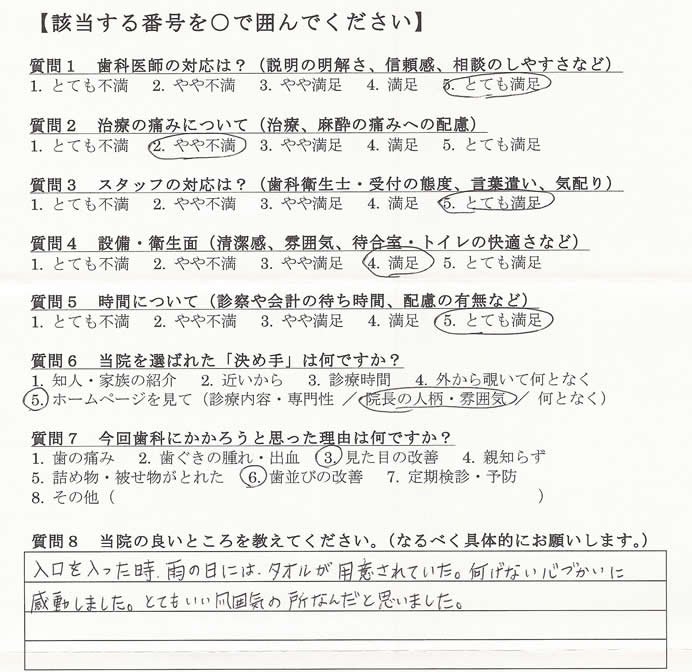 【該当する番号を〇で囲んでください】
質問１　歯科医師の対応は？（説明の明解さ、信頼感、相談のしやすさなど）
1. とても不満　2. やや不満　3. やや満足　4. 満足　5. とても満足
質問２　治療の痛みについて（治療、麻酔の痛みへの配慮）
1. とても不満　2. やや不満　3. やや満足　4. 満足　5. とても満足
質問３　スタッフの対応は？（歯科衛生士・受付の態度、言葉遣い、気配り）
1. とても不満　2. やや不満　3. やや満足　4. 満足　5. とても満足
質問４　設備・衛生面（清潔感、雰囲気、待合室・トイレの快適さなど）
1. とても不満　2. やや不満　3. やや満足　4. 満足　5. とても満足
質問５　時間について（診察や会計の待ち時間、配慮の有無など）
1. とても不満　2. やや不満　3. やや満足　4. 満足　5. とても満足
質問６　当院を選ばれた「決め手」は何ですか？
1. 知人・家族の紹介　2. 近いから　3. 診療時間　4. 外から覗いて何となく
5. ホームページを見て（診療内容・専門性 ／ 院長の人柄・雰囲気 ／ 何となく）
質問７　今回歯科にかかろうと思った理由は何ですか？
1. 歯の痛み　2. 歯ぐきの腫れ・出血　3. 見た目の改善　4. 親知らず
5. 詰め物・被せ物がとれた　6. 歯並びの改善　7. 定期検診・予防
8. その他（　　　　　　　　　　　　　　　　　　　　　　）
質問８　当院の良いところを教えてください。（なるべく具体的にお願いします。）
入口を入った時、雨の日には、タオルが用意されていた。何げない心づかいに
感動しました。とてもいい雰囲気の所なんだと思いました。